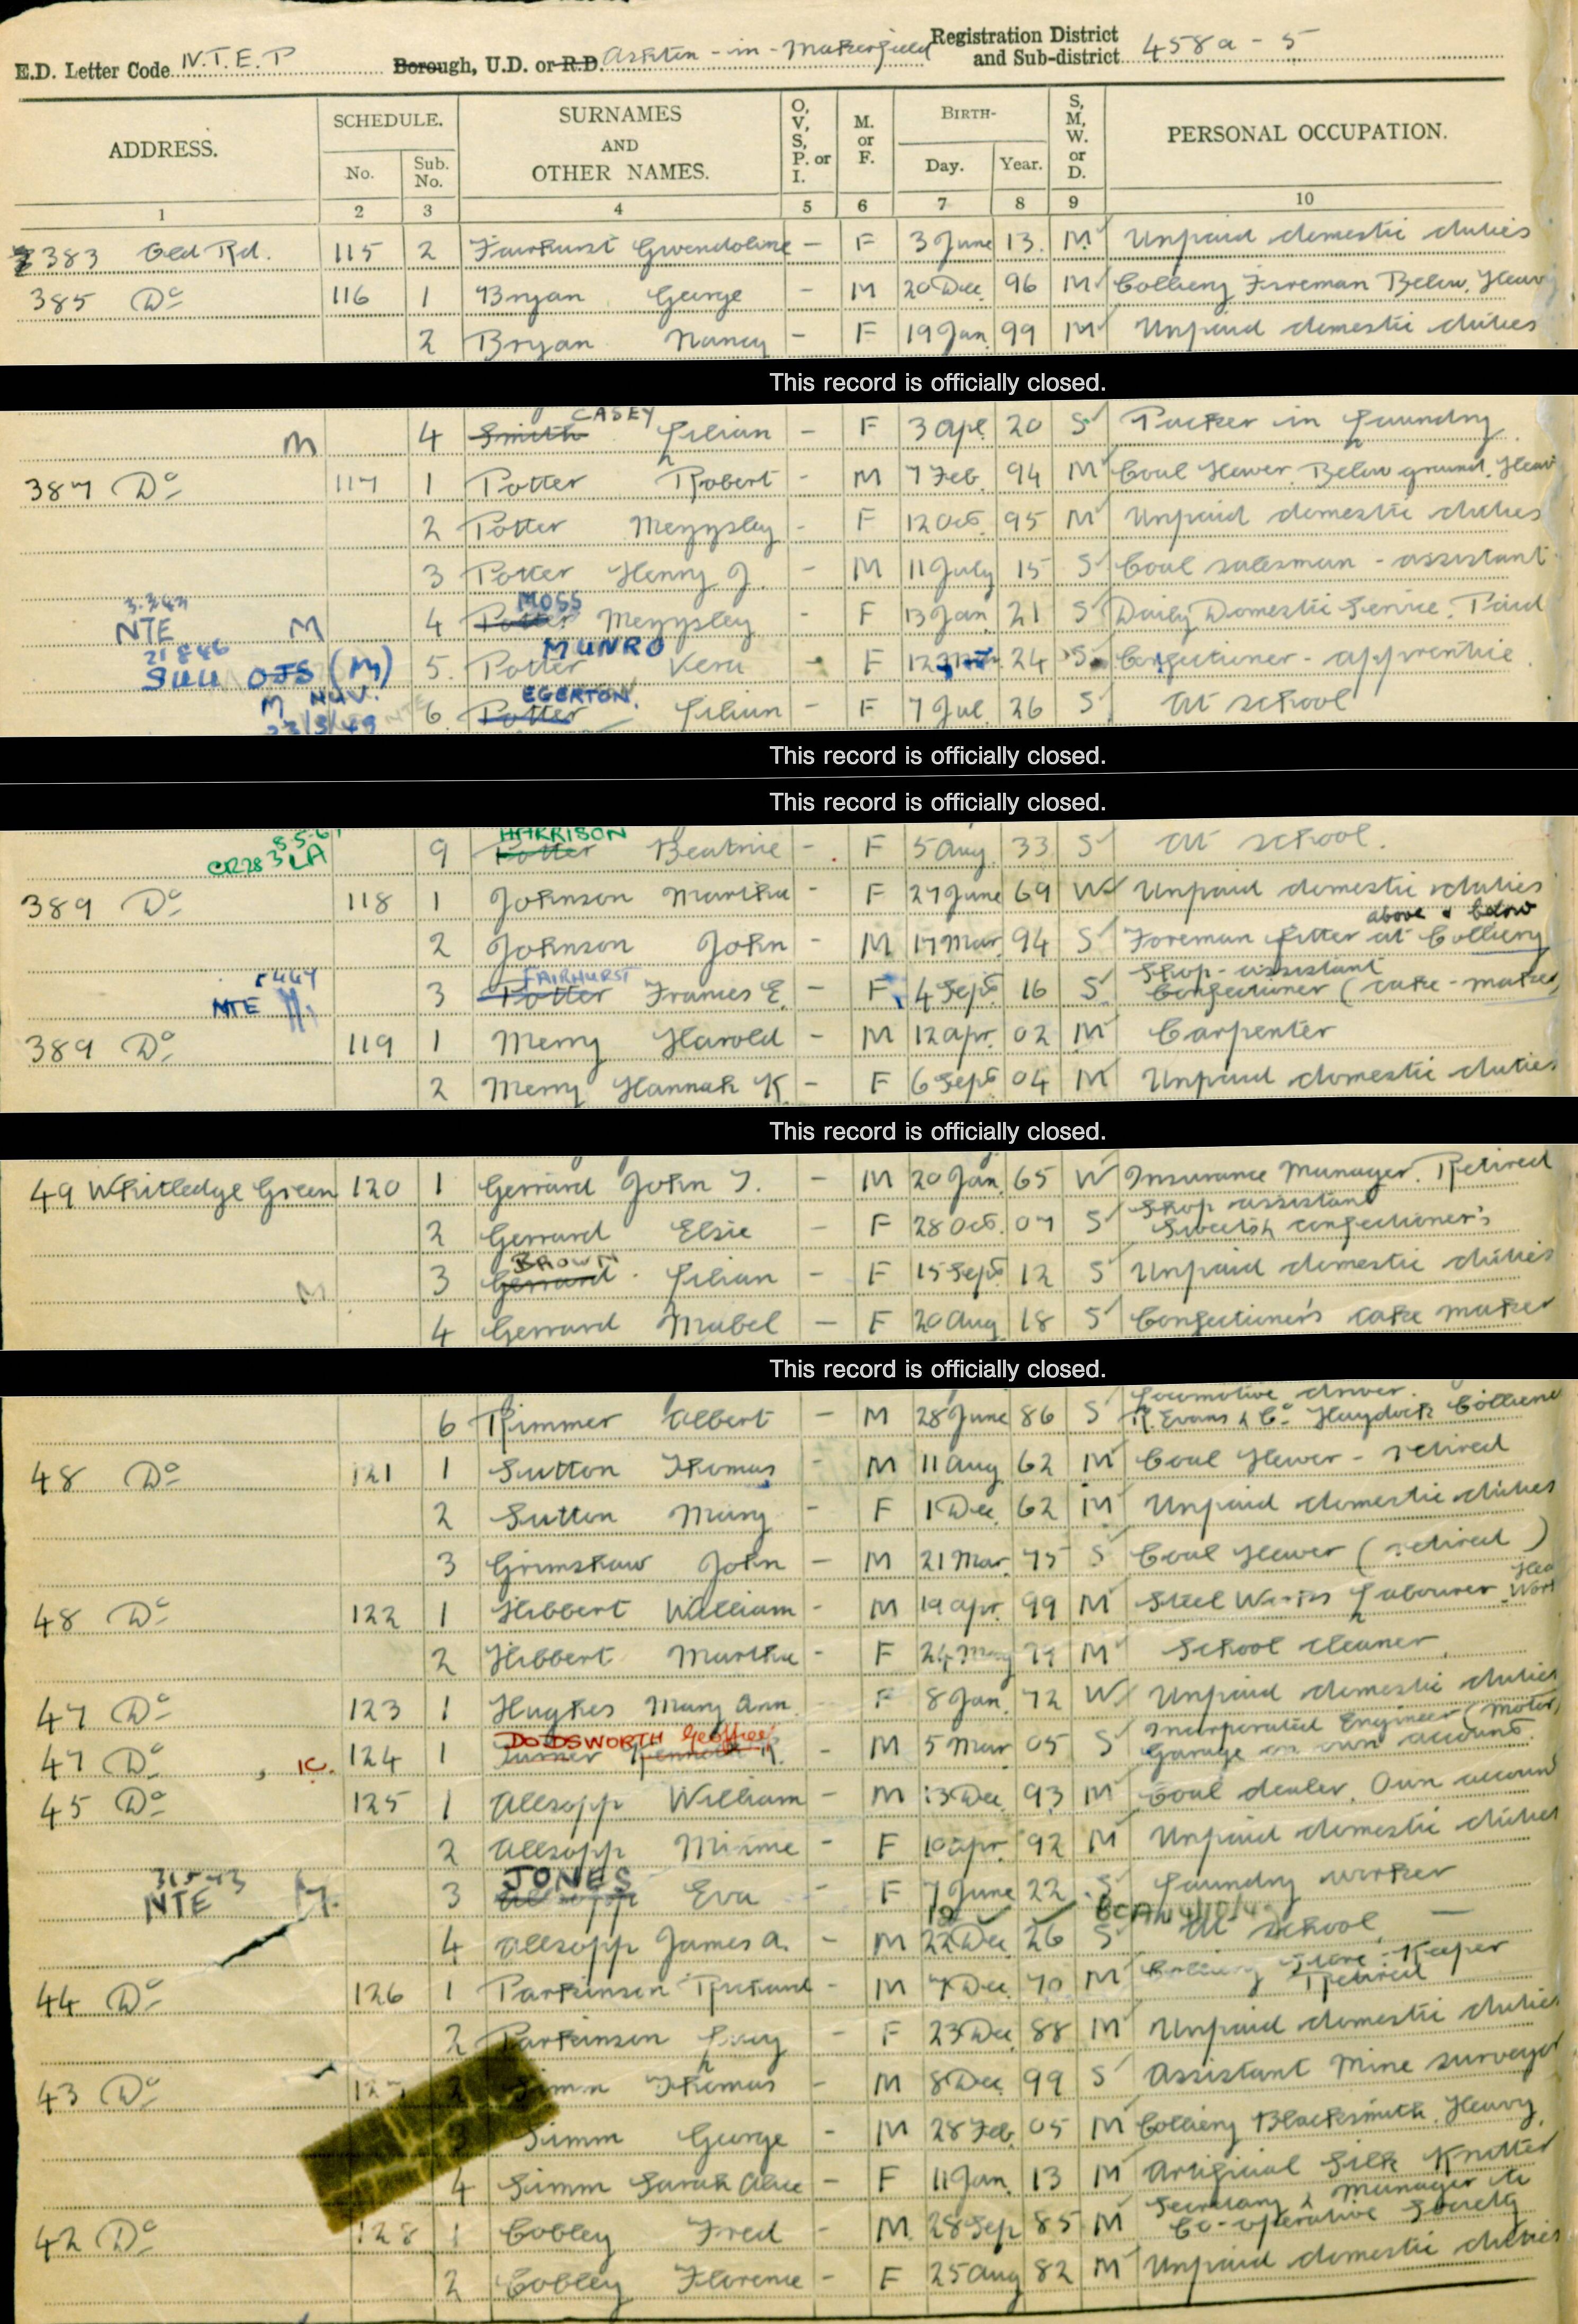 E.D. Letter Code N.T.E.P Borough, U.D. or R.D. Ashton-in-Makerfield Registration District and Sub-district 458a - 5
ADDRESS. SCHEDULE. No. Sub. No. SURNAMES AND OTHER NAMES. O, V, S, P. or I. M. or F. BIRTH- Day. Year. S, M, W. or D. PERSONAL OCCUPATION.
1 2 3 4 5 6 7 8 9 10
383 Old Rd. 115 2 Fairhurst Gwendoline - F 3 June 13. M Unpaid domestic duties
385 Do 116 1 Bryan George - M 20 Dec. 96 M Colliery Fireman Below. Heavy
2 Bryan Nancy - F 19 Jan. 99 M Unpaid domestic duties
This record is officially closed.
CASEY
M 4 Smith Lilian - F 3 Apl. 20 S Packer in Laundry
387 Do 117 1 Potter Robert - M 7 Feb. 94 M Coal Hewer. Below ground. Heav
2 Potter Meyysley - F 12 Oct. 95 M Unpaid domestic duties
3 Potter Henry J. - M 11 July 15 S Coal salesman - assistant
MOSS
NTE M 4 Potter Meyysley - F 13 Jan. 21 S Daily Domestic Service. Paid
21 8 46 MUNRO
OJS (M) 5. Potter Vera - F 12 24 S Confectioner - apprentice.
M NUV. EGERTON.
23/3/49 6 Potter Lilian - F 7 Jul. 26 S At school
This record is officially closed.
This record is officially closed.
HARRISON
CR283 LA 9 Potter Beatrice - F 5 Aug. 33 S At school.
389 Do 118 1 Johnson Martha - F 27 June 69 W Unpaid domestic duties
above & below
2 Johnson John - M 17 Mar. 94 S Foreman fitter at Colliery
FAIRHURST Shop-assistant
NTE M. 3 Potter Frances E. - F 4 Sept 16 S. Confectioner (cake-maker)
389 Do 119 1 Merry Harold - M 12 Apr. 02 M Carpenter
2 Merry Hannah K - F 6 Sept 04 M Unpaid domestic duties
This record is officially closed.
49 Whitledge Green 120 1 Gerrard John T. - M 20 Jan. 65 W Insurance Manager. Retired
Shop assistant
2 Gerrard Elsie - F 28 Oct. 07 S confectioner's
BROWN
M 3 Gerrard Lilian - F 15 Sept 12 S Unpaid domestic duties
4 Gerrard Mabel - F 20 Aug 18 S Confectioner's cake maker
This record is officially closed.
Locomotive driver.
6 Rimmer Albert - M 28 June 86 S R. Evans & Co. Haydock Collierie
48 Do 121 1 Sutton Thomas - M 11 Aug 62 M Coal Hewer - retired
2 Sutton Mary - F 1 Dec. 62 M Unpaid domestic duties
3 Grimshaw John - M 21 Mar. 75 S Coal Hewer (retired)
48 Do 122 1 Hibbert William - M 19 Apr. 99 M Steel Works Labourer. Hea Work
2 Hibbert Martha - F 24 May M School cleaner
47 Do 123 1 Hughes Mary Ann. F 8 Jan. 72 W Unpaid domestic duties
DODSWORTH Geoffrey Incorporated Engineer (Motor)
47 Do IC. 124 1 Turner Kenneth R. - M 5 Mar 05 S Garage on own account.
45 Do 125 1 Allsopp William - M 13 Dec. 93 M Coal dealer. Own accoun
2 Allsopp Minnie - F 10 Apr. 92 M Unpaid domestic duties
JONES
NTE M. 3 Allsopp Eva - F 7 June 22 S Laundry worker
4 Allsopp James A. - M 22 Dec. 26 S At school.
44 Do 126 1 Parkinson Richard - M 7 Dec. 70 M Colliery Store-Keeper Retired
2 Parkinson Lucy - F 23 Dec 88 M Unpaid domestic duties
43 Do 127 2 Simm Thomas - M 8 Dec. 99 S Assistant Mine surveyor
Simm George - M 28 Feb. 05 M Colliery Blacksmith. Heavy.
4 Simm Sarah Alice - F 11 Jan. 13 M Artificial Silk Knitter
Secretary & Manager to
42 Do 128 1 Cobley Fred - M. 28 Sep 85 M Co-operative Society
2 Cobley Florence - F 25 Aug 82 M Unpaid domestic duties